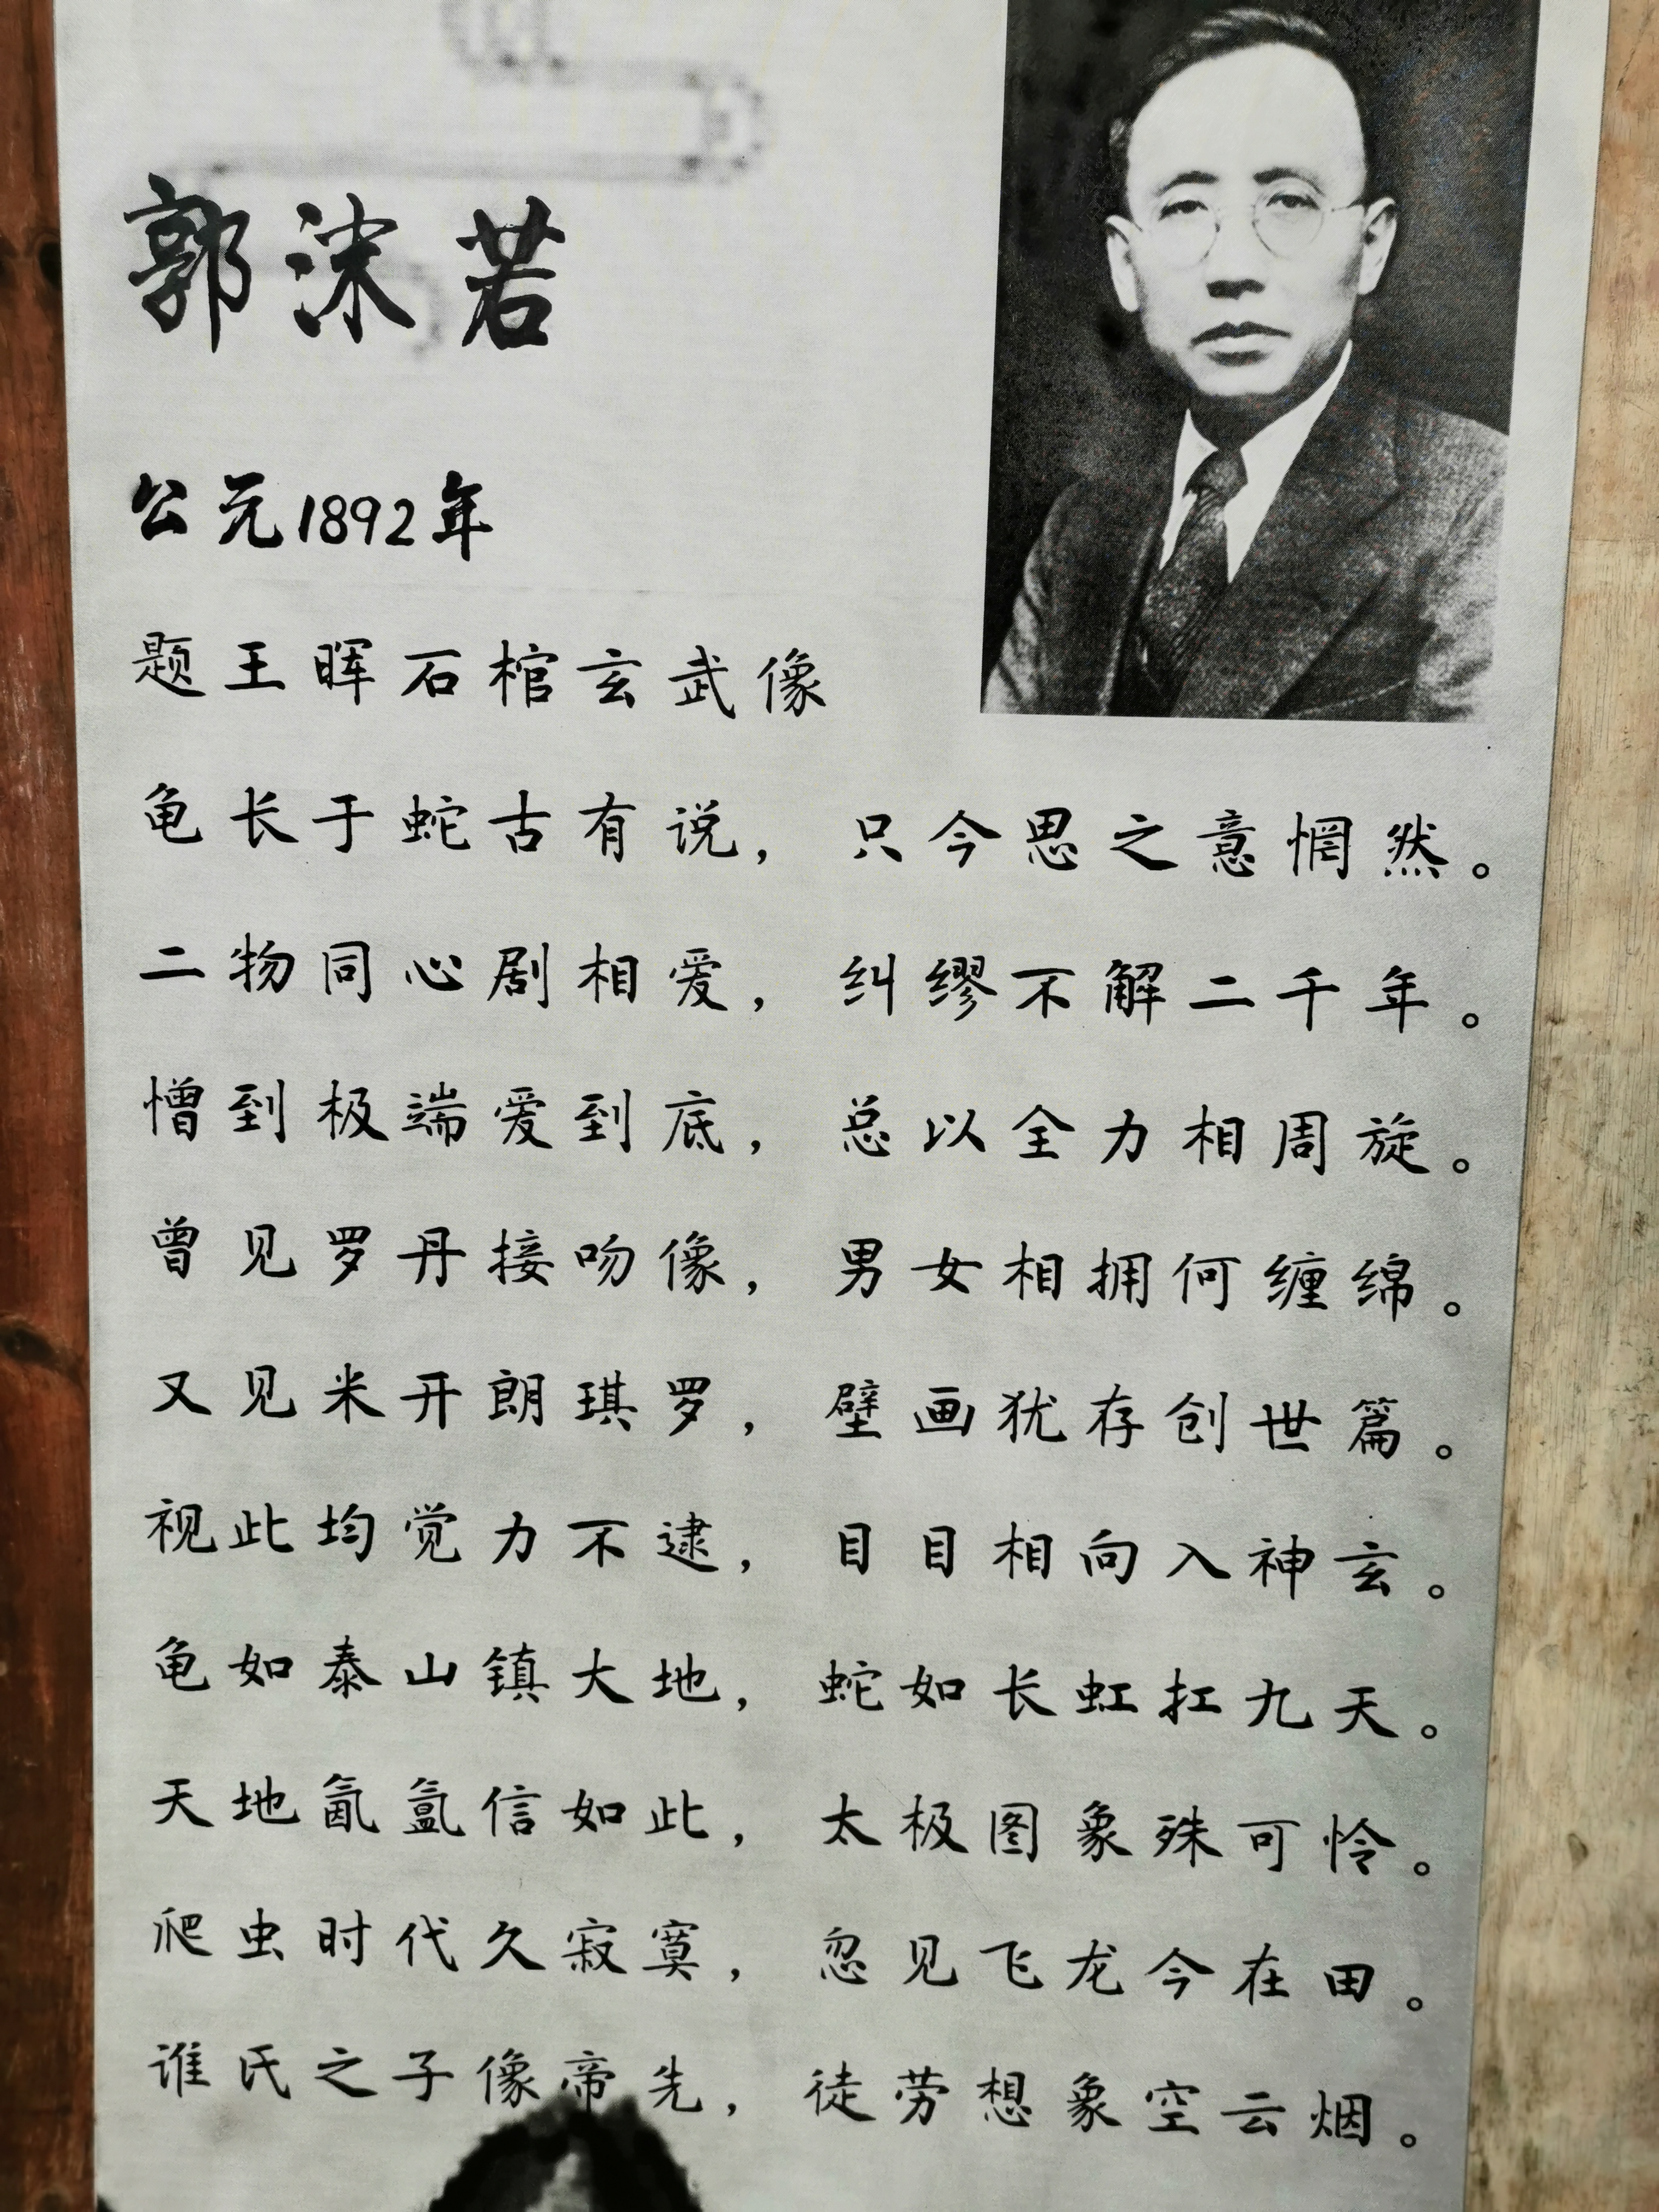 郭沫若
公元1892年
题王晖石棺玄武像
龟长于蛇古有说，只今思之意惘然。
二物同心剧相爱，纠缪不解二千年。
憎到极端爱到底，总以全力相周旋。
曾见罗丹接吻像，男女相拥何缠绵。
又见米开朗琪罗，壁画犹存创世篇。
视此均觉力不逮，目目相向入神玄。
龟如泰山镇大地，蛇如长虹扛九天。
天地氤氲信如此，太极图象殊可怜。
爬虫时代久寂寞，忽见飞龙今在田。
谁氏之子像帝先，徒劳想象空云烟。